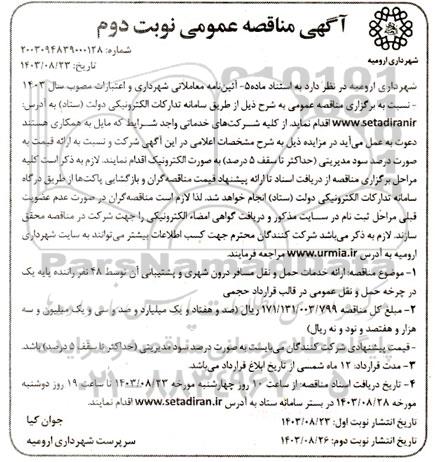 آگهی مناقصه عمومی نوبت دوم
شماره: ۲۰۰۳۰۹۴۸۳۹۰۰۰۱۲۸
تاریخ: ۱۴۰۳/۰۸/۲۳
شهرداری ارومیه
شهرداری ارومیه در نظر دارد به استناد ماده۵- آئین‌نامه معاملاتی شهرداری و اعتبارات مصوب سال ۱۴۰۳
- نسبت به برگزاری مناقصه عمومی به شرح ذیل از طریق سامانه تدارکات الکترونیکی دولت (ستاد) به آدرس:
www.setadiranir اقدام نمایند. از کلیه شرکت‌های خدماتی واجد شرایط که مایل به همکاری هستند
دعوت به عمل می‌آید در مزایده ذیل به شرح مشخصات اعلامی در این آگهی شرکت و نسبت به ارائه قیمت به
صورت درصد سود مدیریتی (حداکثر تا سقف ۵ درصد) به صورت الکترونیک اقدام نمایند. لازم به ذکر است کلیه
مراحل برگزاری مناقصه از دریافت اسناد تا ارائه پیشنهاد قیمت مناقصه‌گران و بازگشایی پاکت‌ها از طریق درگاه
سامانه تدارکات الکترونیکی دولت (ستاد) انجام خواهد شد. لذا لازم است مناقصه‌گران در صورت عدم عضویت
قبلی مراحل ثبت نام در سایت مذکور و دریافت گواهی امضاء الکترونیکی را جهت شرکت در مناقصه محقق
سازند. لازم به ذکر می‌باشد شرکت کنندگان محترم جهت کسب اطلاعات بیشتر می‌توانند به سایت شهرداری
ارومیه به آدرس www.urmia.ir مراجعه فرمایند.
۱- موضوع مناقصه: ارائه خدمات حمل و نقل مسافر درون شهری و پشتیبانی آن توسط ۴۸ نفر راننده پایه یک
در چرخه حمل و نقل عمومی در قالب قرارداد حجمی
۲- مبلغ کل مناقصه ۱۷۱/۱۳۱/۰۰۳/۷۹۹ ریال (صد و هفتاد و یک میلیارد و صد و سی و یک میلیون و سه
هزار و هفتصد و نود و نه ریال)
- قیمت پیشنهادی شرکت کنندگان می‌بایست به صورت درصد سود مدیریتی (حداکثر تا سقف ۵ درصد) باشد.
۳- مدت قرارداد: ۱۲ ماه شمسی از تاریخ ابلاغ قرارداد می‌باشد.
۴- تاریخ دریافت اسناد مناقصه: از ساعت ۱۰ روز چهارشنبه مورخه ۱۴۰۳/۰۸/۲۳ تا ساعت ۱۹ روز دوشنبه
مورخه ۱۴۰۳/۰۸/۲۸ در بستر سامانه ستاد به آدرس www.setadiran.ir اقدام نمایند.
تاریخ انتشار نوبت اول: ۱۴۰۳/۰۸/۲۳
جوان کیا
تاریخ انتشار نوبت دوم: ۱۴۰۳/۰۸/۲۶
سرپرست شهرداری ارومیه